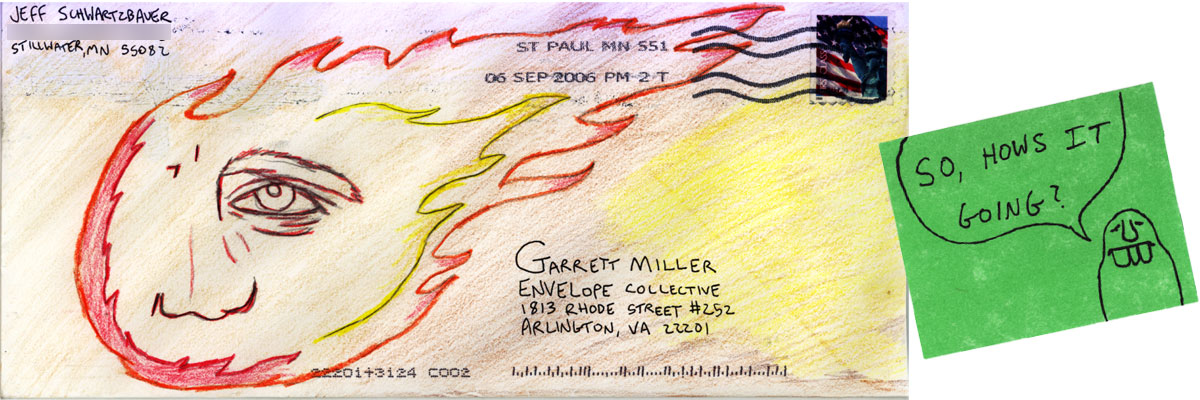 JEFF SCHWARTZBAUER
STILLWATER, MN 55082
ST PAUL MN 551
06 SEP 2006 PM 2 T
GARRETT MILLER
ENVELOPE COLLECTIVE
1813 RHODE STREET #252
ARLINGTON, VA 22201
22201+3124 C002
SO, HOWS IT
GOING?